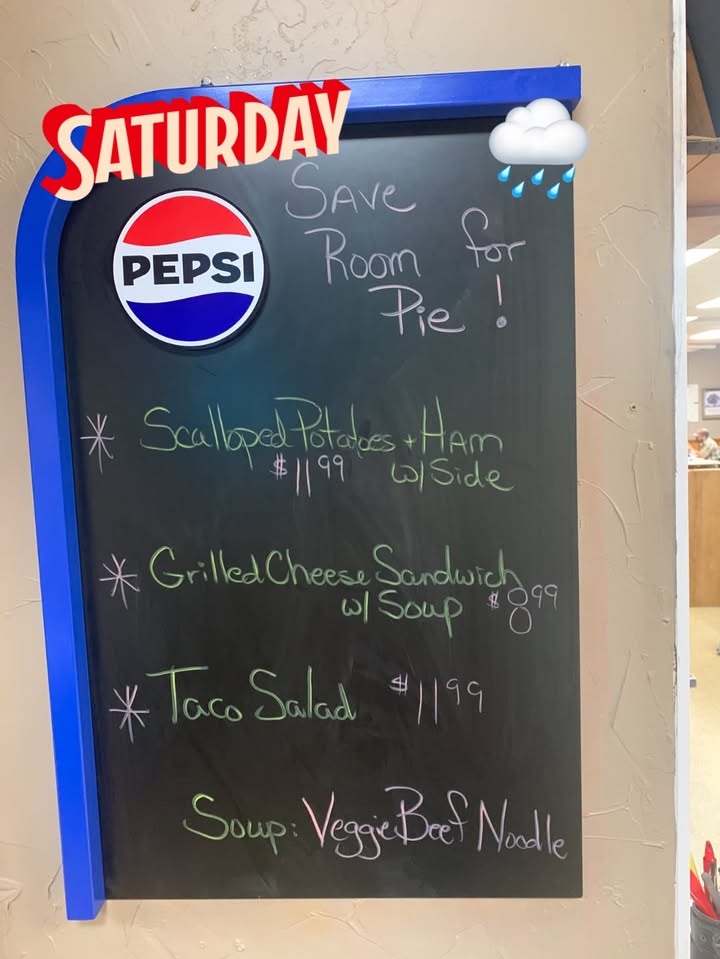 SATURDAY
PEPSI
SAVE
Room for
Pie !
* Scalloped Potatoes + HAM
$11.99 w/ Side
* Grilled Cheese Sandwich
w/ Soup $8.99
* Taco Salad $11.99
Soup: Veggie Beef Noodle